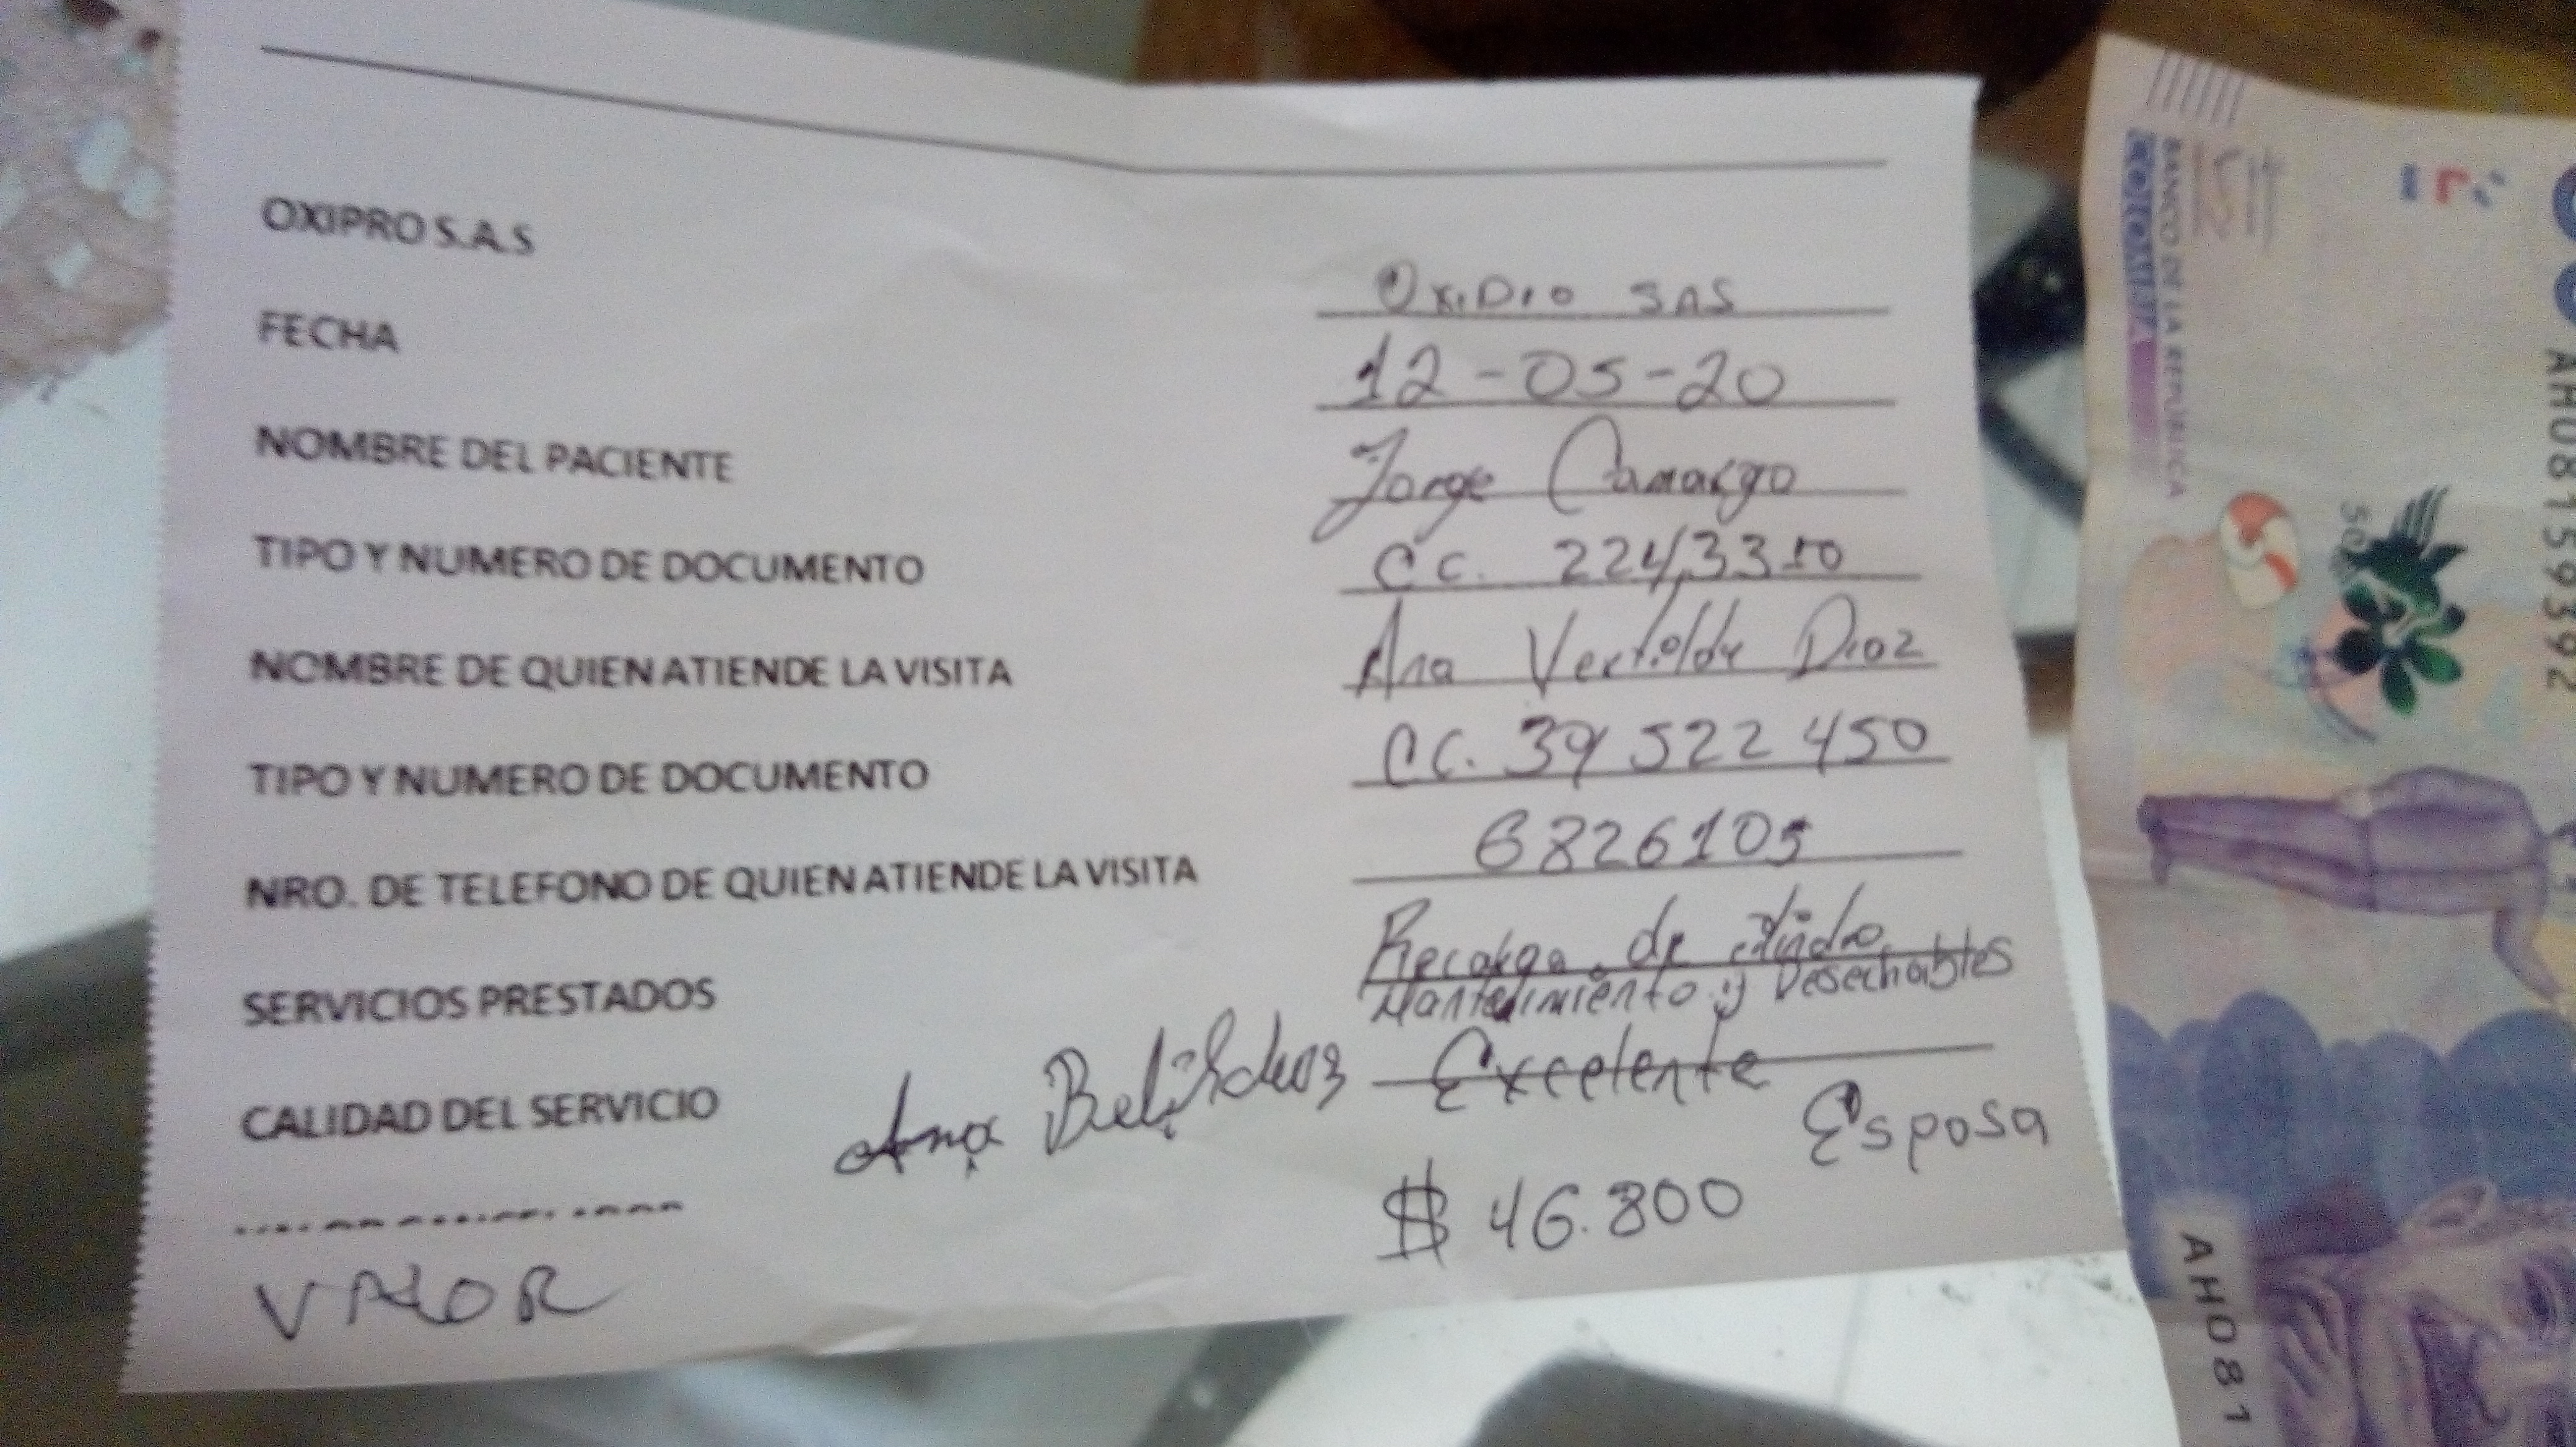 OXIPRO S.A.S
OxiDio SAS
FECHA
12-05-20
NOMBRE DEL PACIENTE
Jorge Camargo
TIPO Y NUMERO DE DOCUMENTO
CC. 2243310
NOMBRE DE QUIEN ATIENDE LA VISITA
Ana Diaz
TIPO Y NUMERO DE DOCUMENTO
CC. 39 522 450
NRO. DE TELEFONO DE QUIEN ATIENDE LA VISITA
6826105
SERVICIOS PRESTADOS
Recarga de
Mantenimiento y Desechables
CALIDAD DEL SERVICIO
Excelente
Ana
Esposa
VALOR
$ 46.800
BANCO DE LA REPÚBLICA
COLOMBIA
50
AH08159392
AH081